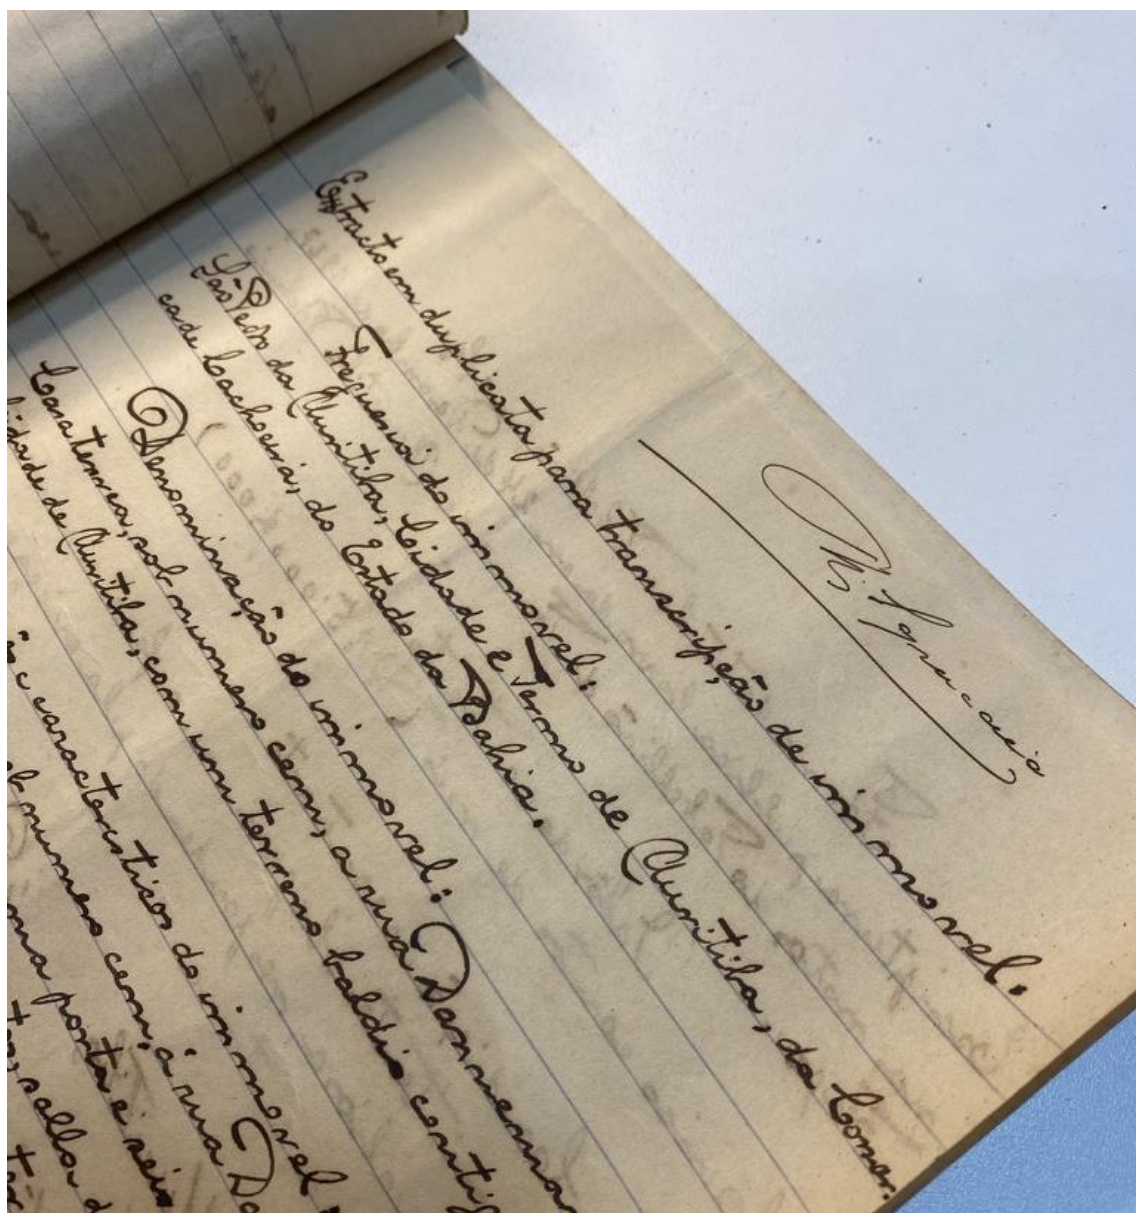 Extracto em duplicata para transcripção de immovel.
Freguesia do immovel:
São Pedro da Muritiba, Cidade e Termo de Muritiba, da Comar-
ca de Cachoeira, do Estado da Bahia.
Denominação do immovel:
Casa terrea, sob numero cem, a rua
lidade de Muritiba, com um terreno baldio contig
caracteristicos do immovel
numero cem, á rua
ma porta e seis